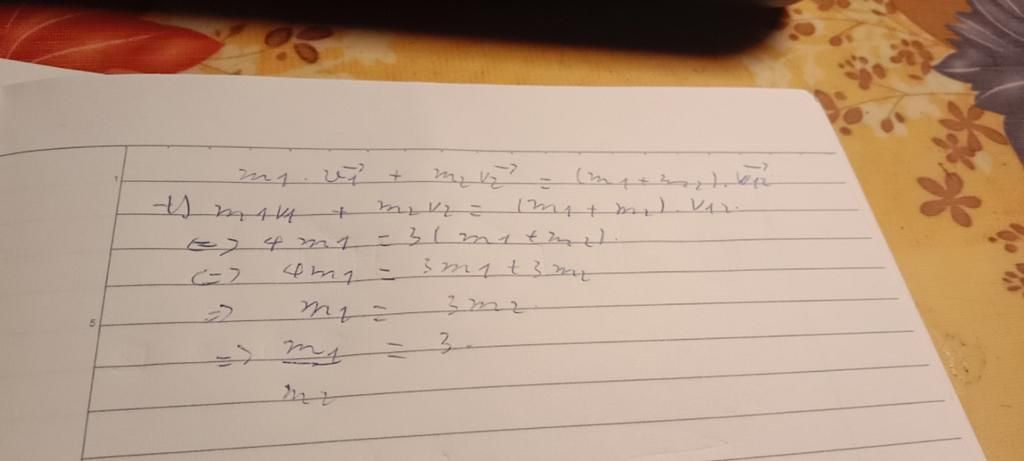 m1 . v1→ + m2 v2→ = (m1 + m2) . v12→
m1v1 + m2v2 = (m1 + m2) . v12.
<=> 4m1 = 3(m1 + m2).
<=> 4m1 = 3m1 + 3m2
=> m1 = 3m2.
=> m1/m2 = 3.
5